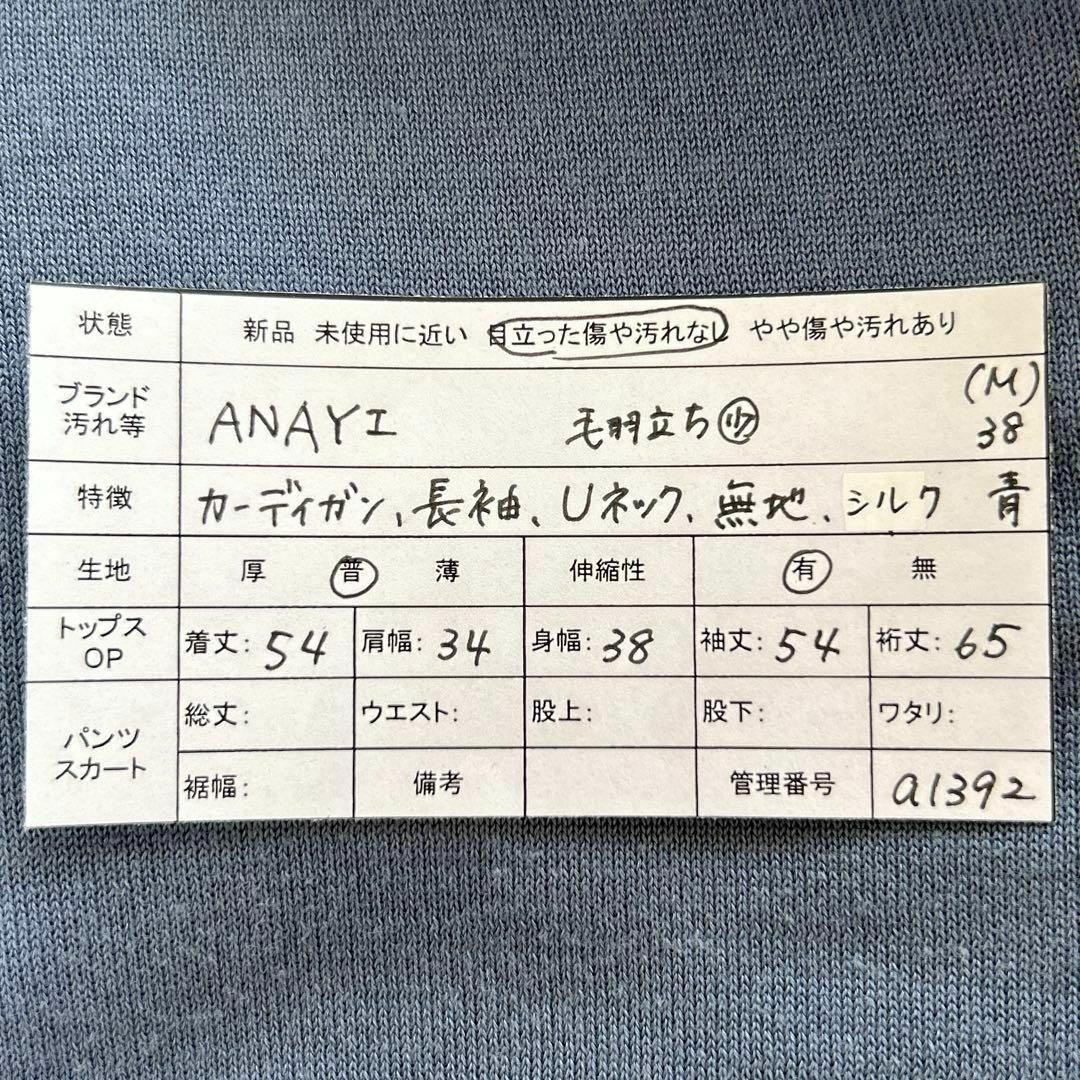 状態 新品 未使用に近い 目立った傷や汚れなし やや傷や汚れあり
ブランド
汚れ等 ANAYI 毛羽立ち 少 (M)
38
特徴 カーディガン、長袖、Uネック、無地、シルク 青
生地 厚 普 薄 伸縮性 有 無
トップス
OP 着丈: 54 肩幅: 34 身幅: 38 袖丈: 54 裄丈: 65
パンツ
スカート 総丈: ウエスト: 股上: 股下: ワタリ:
裾幅: 備考 管理番号 a1392